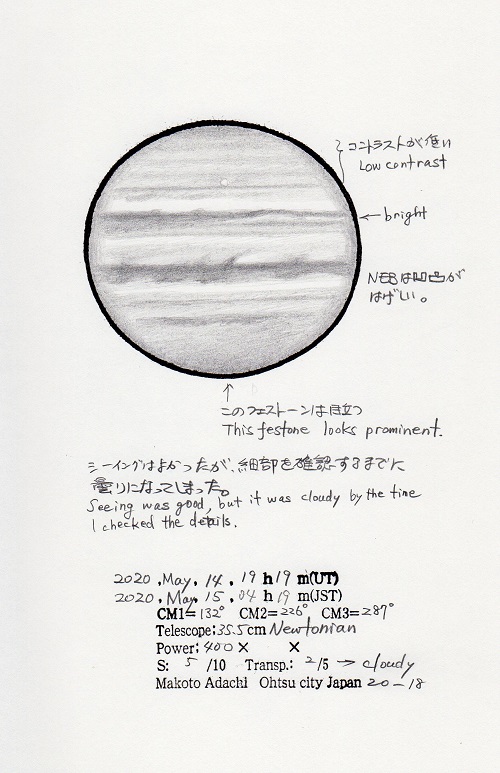 コントラストが低い
Low contrast
← bright
NEBは凹凸が
はげしい。
↑
このフェストーンは目立つ
This festone looks prominent.
シーイングはよかったが、細部を確認するまでに
曇りになってしまった。
Seeing was good, but it was cloudy by the time
I checked the details.
2020. May. 14. 19 h 19 m(UT)
2020. May 15. 04 h 19 m(JST)
CM1= 132° CM2= 226° CM3= 287°
Telescope: 35.5cm Newtonian
Power: 400 × ×
S: 5 /10 Transp.: 2/5 → cloudy
Makoto Adachi Ohtsu city Japan 20-18